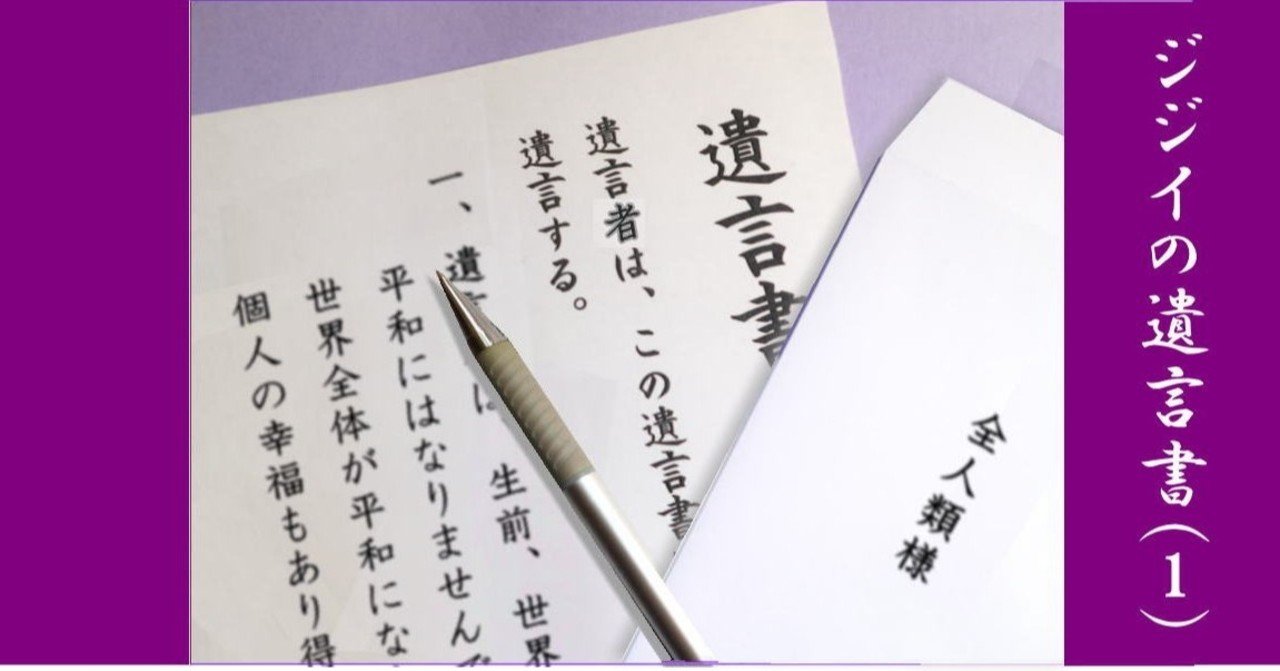 ジジイの遺言書(1)
全人類様
遺言書
遺言者は、この遺言書
遺言する。
一、遺 は 生前、世界
平和にはなりませんで
世界全体が平和にな
個人の幸福もあり得